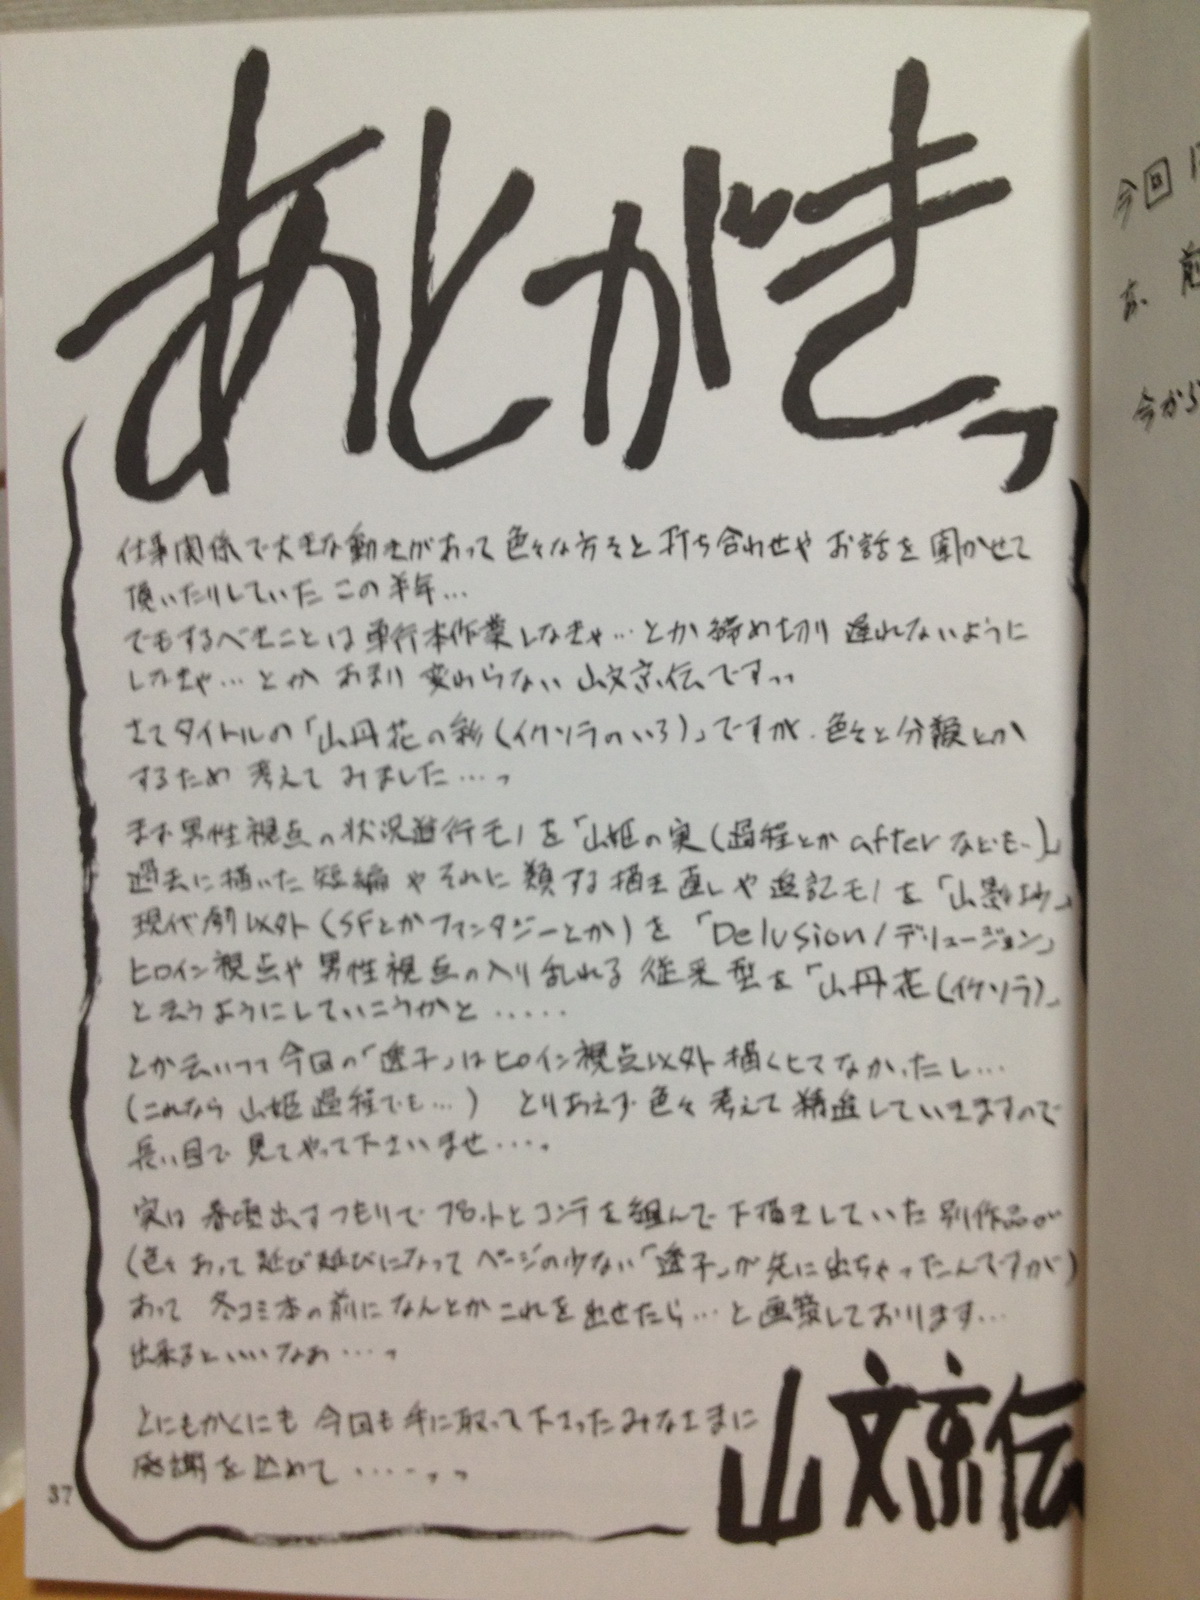 あとがきっ
仕事関係で大きな動きがあって色々な方々と打ち合わせやお話を聞かせて
頂いたりしていたこの半年…
でもするべきことは単行本作業しなきゃ…とか締め切り遅れないように
しなきゃ…とかあまり変わらない山文京伝ですっっ
さてタイトルの「山丹花の彩(イケソラのいろ)」ですが、色々と分類とか
するため考えてみました…っ
まず男性視点の状況進行モノを「山姫の実(過程とかafterなども…)」
過去に描いた短編やそれに類する描き直しや追記モノを「山影抄」
現代劇以外(SFとかファンタジーとか)を「Delusion/デリュージョン」
ヒロイン視点や男性視点の入り乱れる従来型を「山丹花(イケソラ)」
と云うようにしていこうかと.....
とか云いつつ今回の「透子」はヒロイン視点以外描くヒマなかったし…
(これなら山姫過程でも…) とりあえず色々考えて精進していきますので
長い目で見てやって下さいませ....。
実は春頃出すつもりでプロットとコンテを組んで下描きしていた別作品が
(色々あって延び延びになってページの少ない「透子」が先に出ちゃったんですが)
あって 冬コミ本の前になんとかこれを出せたら…と画策しております…
出来るといいなぁ…っ
とにもかくにも 今回も手に取って下さったみなさまに
感謝を込めて.....っっ
山文京伝
37
今回
今から